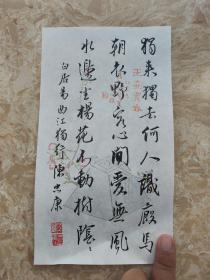 獨來獨去何人識廄馬
朝衣野客心閒愛無風
水邊坐楊花不動樹陰陰
白居易曲江獨行陳忠康